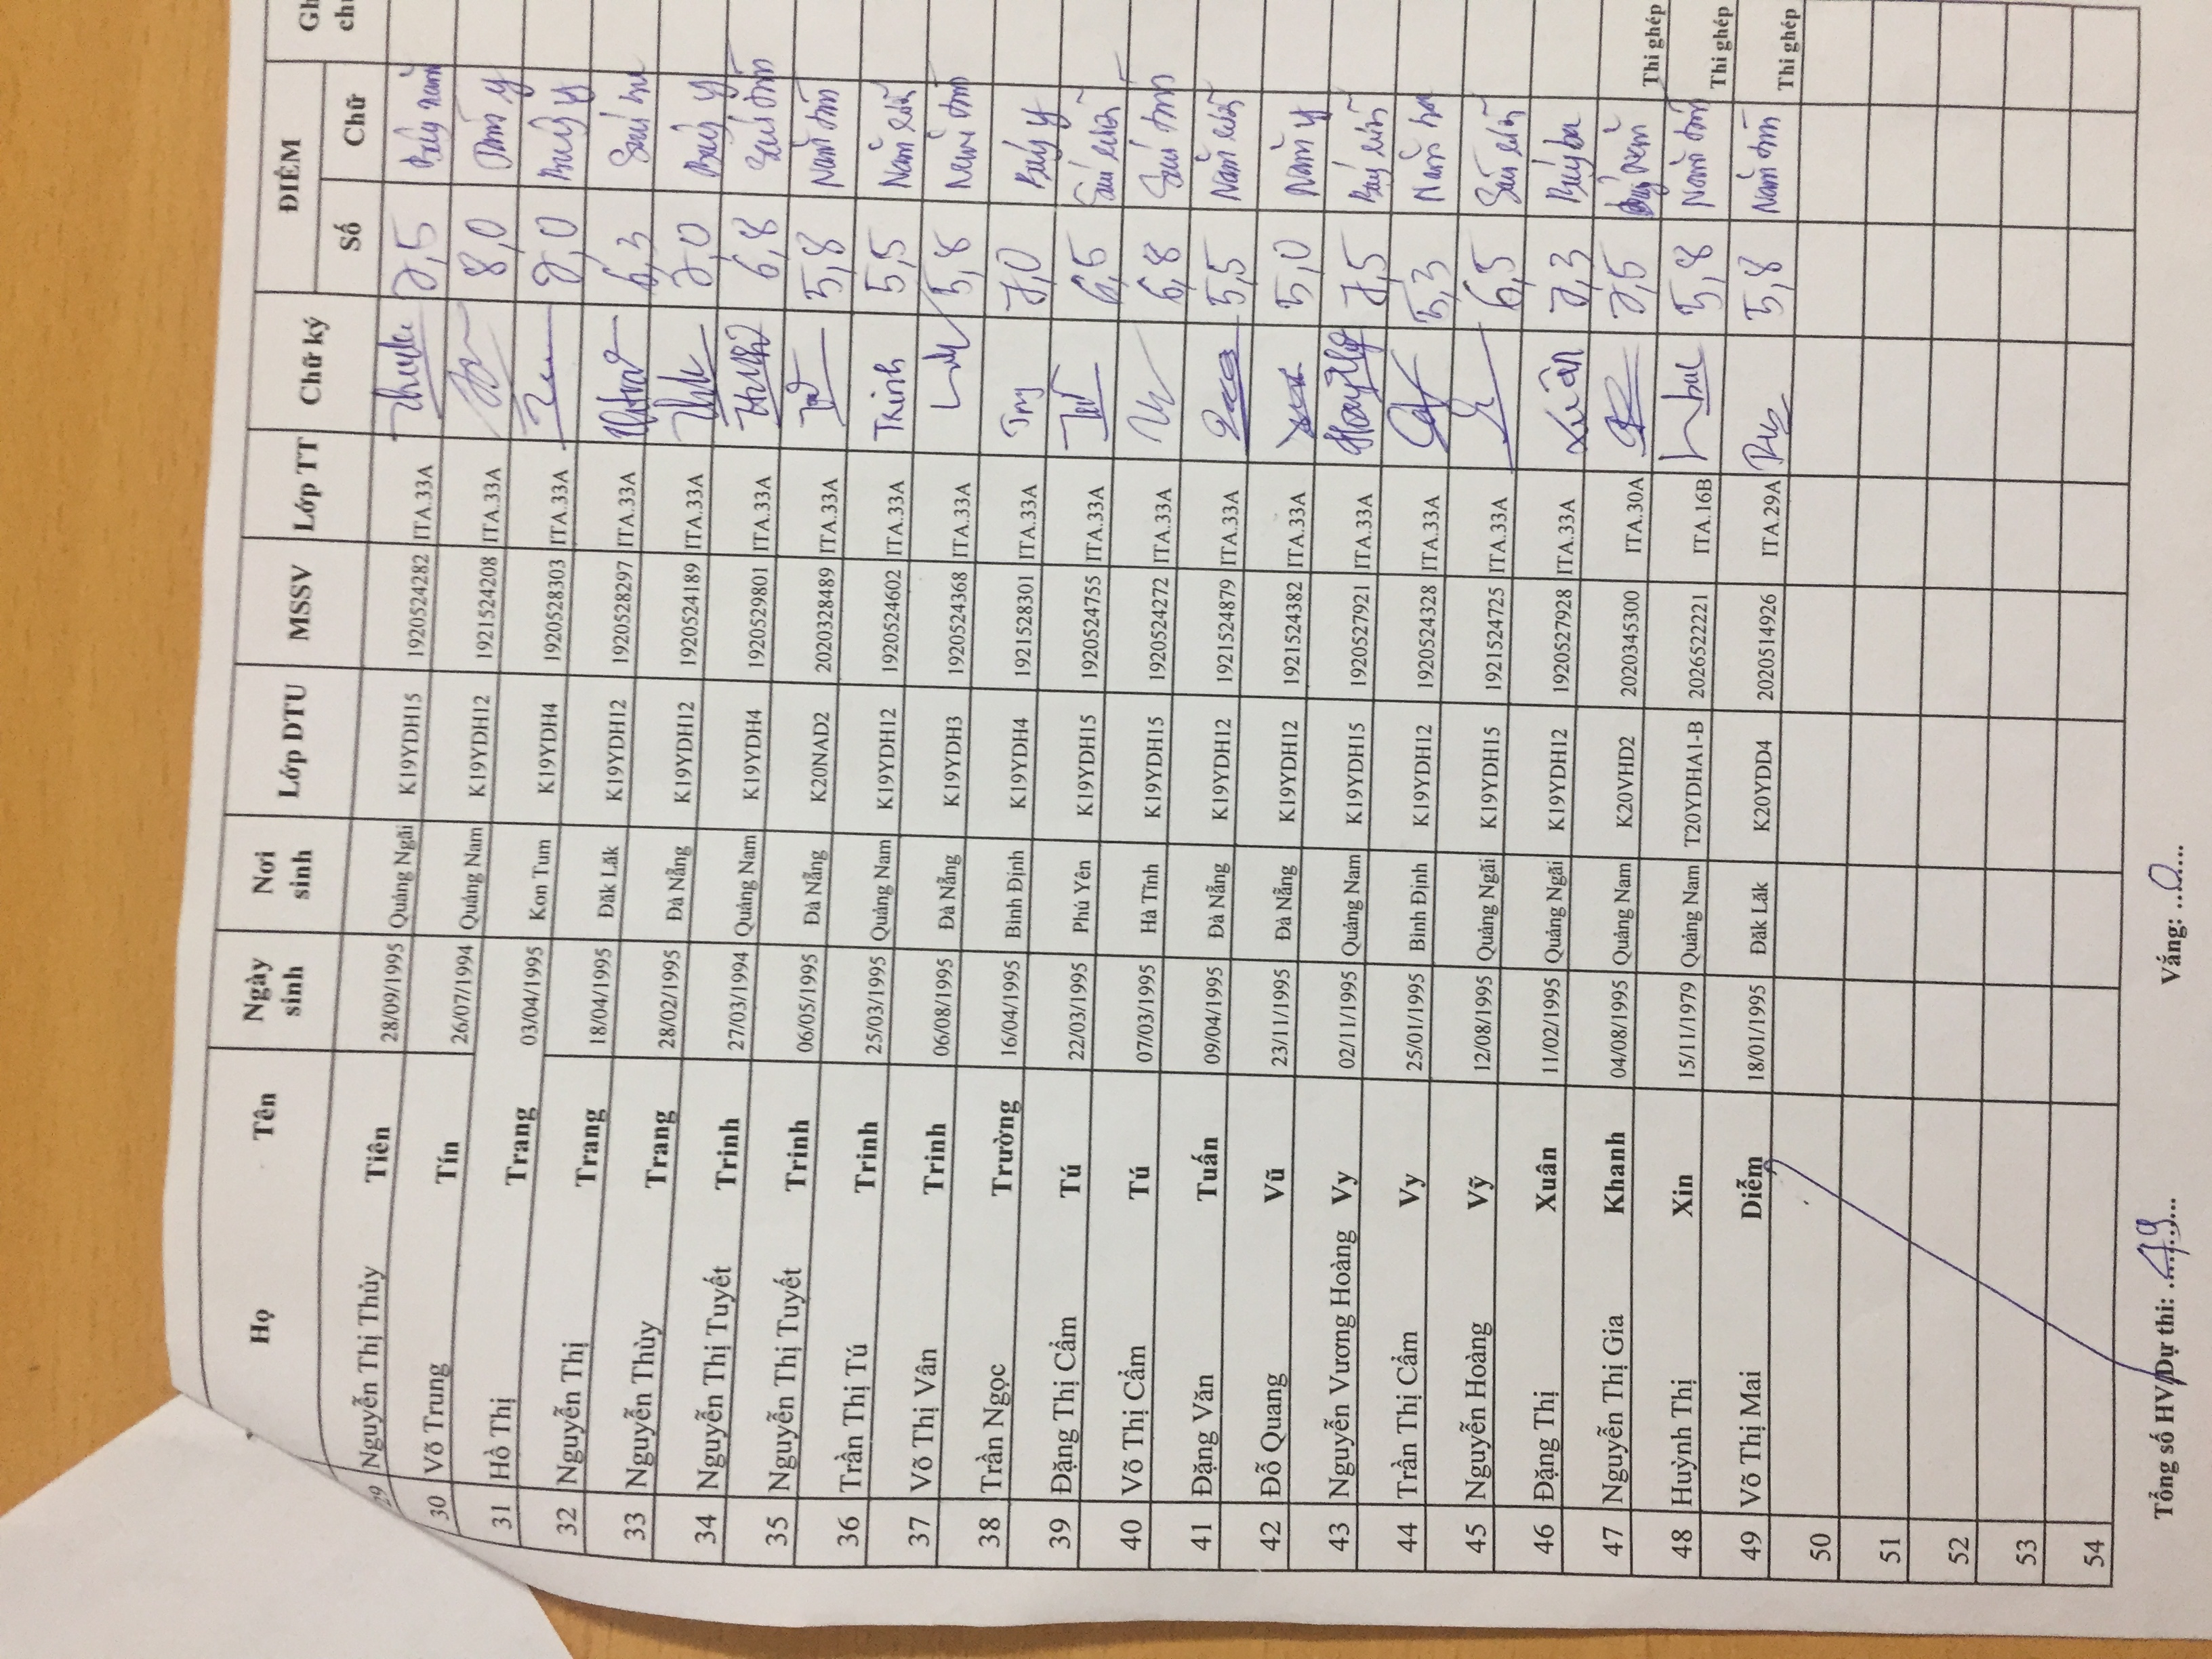 Họ Tên Ngày sinh Nơi sinh Lớp DTU MSSV Lớp TT Chữ ký ĐIỂM Số Chữ
29 Nguyễn Thị Thủy Tiên 28/09/1995 Quảng Ngãi K19YDH15 1920524282 ITA.33A 7,5 Bảy năm
30 Võ Trung Tín 26/07/1994 Quảng Nam K19YDH12 1921524208 ITA.33A 8,0 Tám y
31 Hồ Thị Trang 03/04/1995 Kon Tum K19YDH4 1920528303 ITA.33A 7,0 Bảy y
32 Nguyễn Thị Trang 18/04/1995 Đăk Lăk K19YDH12 1920528297 ITA.33A 6,3 Sáu ba
33 Nguyễn Thùy Trang 28/02/1995 Đà Nẵng K19YDH12 1920524189 ITA.33A 7,0 Bảy y
34 Nguyễn Thị Tuyết Trinh 27/03/1994 Quảng Nam K19YDH4 1920529801 ITA.33A 6,8 Sáu tám
35 Nguyễn Thị Tuyết Trinh 06/05/1995 Đà Nẵng K20NAD2 2020328489 ITA.33A 5,8 Năm tám
36 Trần Thị Tú Trinh 25/03/1995 Quảng Nam K19YDH12 1920524602 ITA.33A Trinh 5,5 Năm rưỡi
37 Võ Thị Vân Trinh 06/08/1995 Đà Nẵng K19YDH3 1920524368 ITA.33A 5,8 Năm tám
38 Trần Ngọc Trường 16/04/1995 Bình Định K19YDH4 1921528301 ITA.33A 7,0 Bảy y
39 Đặng Thị Cẩm Tú 22/03/1995 Phú Yên K19YDH15 1920524755 ITA.33A 6,5 Sáu rưỡi
40 Võ Thị Cẩm Tú 07/03/1995 Hà Tĩnh K19YDH15 1920524272 ITA.33A 6,8 Sáu tám
41 Đặng Văn Tuấn 09/04/1995 Đà Nẵng K19YDH12 1921524879 ITA.33A 5,5 Năm rưỡi
42 Đỗ Quang Vũ 23/11/1995 Đà Nẵng K19YDH12 1921524382 ITA.33A 5,0 Năm y
43 Nguyễn Vương Hoàng Vy 02/11/1995 Quảng Nam K19YDH15 1920527921 ITA.33A 7,5 Bảy rưỡi
44 Trần Thị Cẩm Vy 25/01/1995 Bình Định K19YDH12 1920524328 ITA.33A 5,3 Năm ba
45 Nguyễn Hoàng Vỹ 12/08/1995 Quảng Ngãi K19YDH15 1921524725 ITA.33A 6,5 Sáu rưỡi
46 Đặng Thị Xuân 11/02/1995 Quảng Ngãi K19YDH12 1920527928 ITA.33A Xuân 7,3 Bảy ba
47 Nguyễn Thị Gia Khanh 04/08/1995 Quảng Nam K20VHD2 2020345300 ITA.30A 7,5 Thi ghép
48 Huỳnh Thị Xin 15/11/1979 Quảng Nam T20YDHA1-B 2026522221 ITA.16B 5,8 Năm tám Thi ghép
49 Võ Thị Mai Diễm 18/01/1995 Đăk Lăk K20YDD4 2020514926 ITA.29A 5,8 Năm tám Thi ghép
50
51
52
53
54
Tổng số HV Dự thi: ...49... Vắng: ...0...